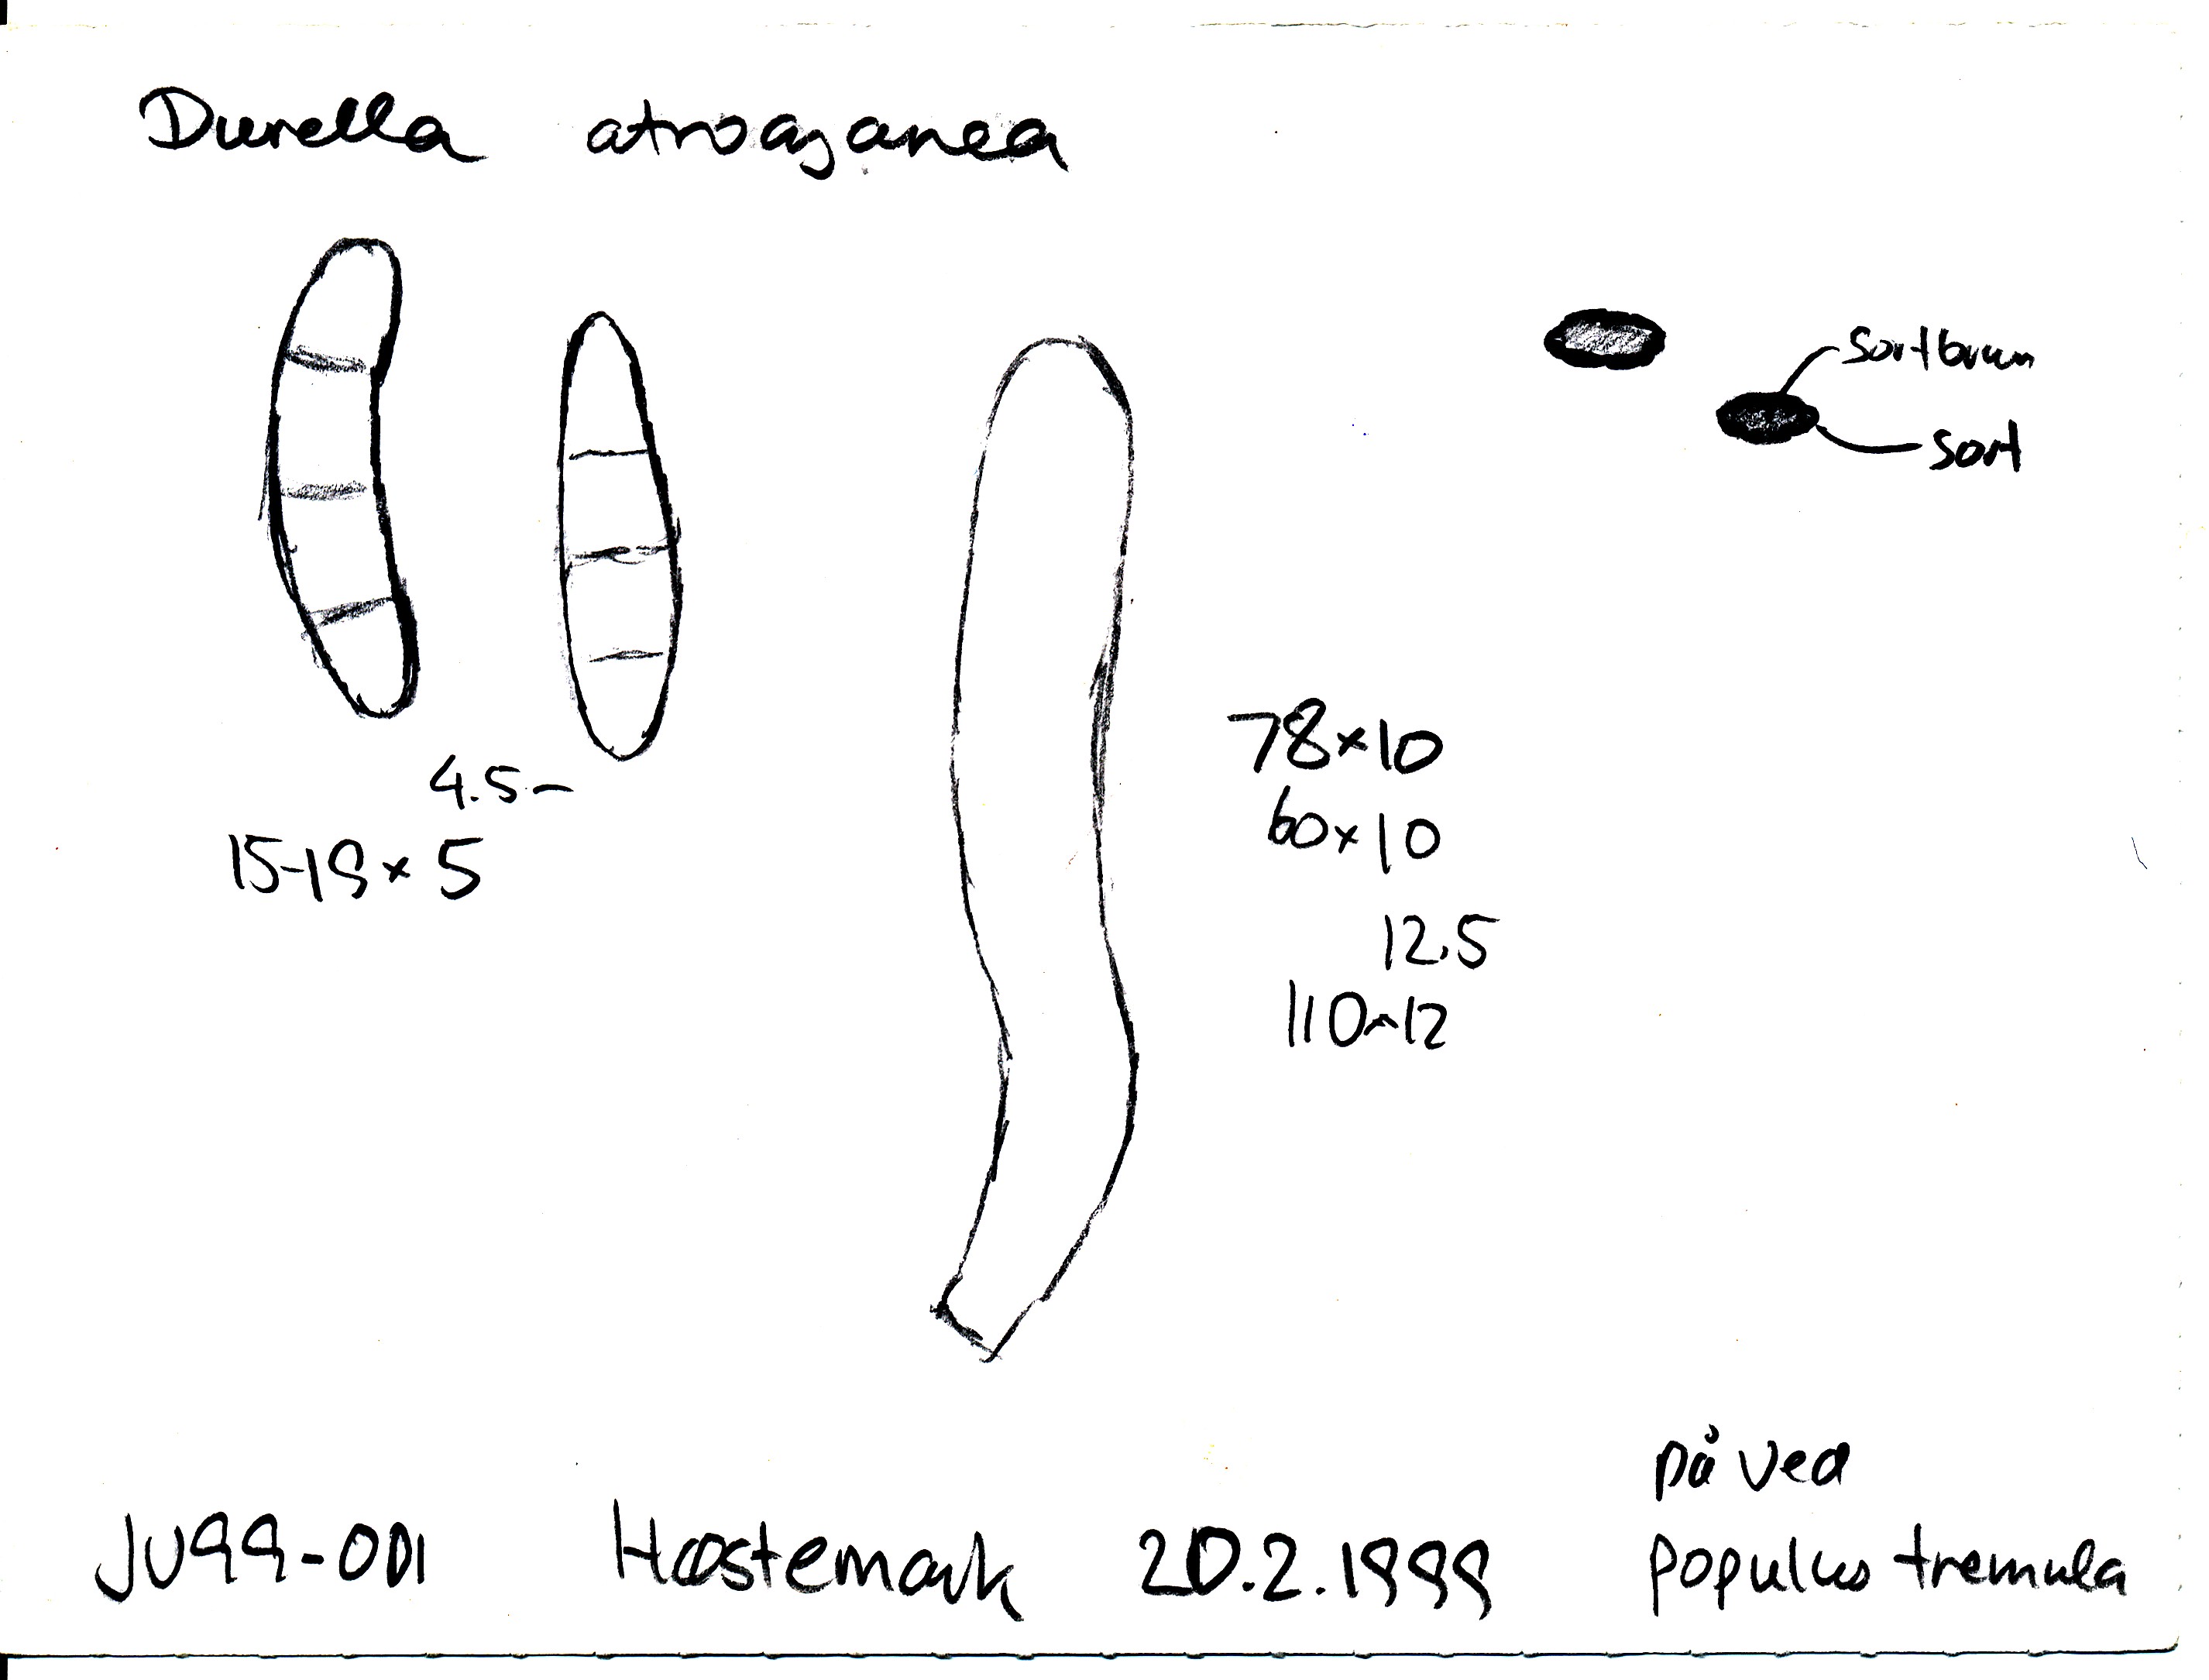 Durella atrocyanea
sortbrun
sort
4.5-
15-19 × 5
78×10
60×10
12.5
110×12
på ved
JV99-001 Høstemark 20.2.1999 populus tremula